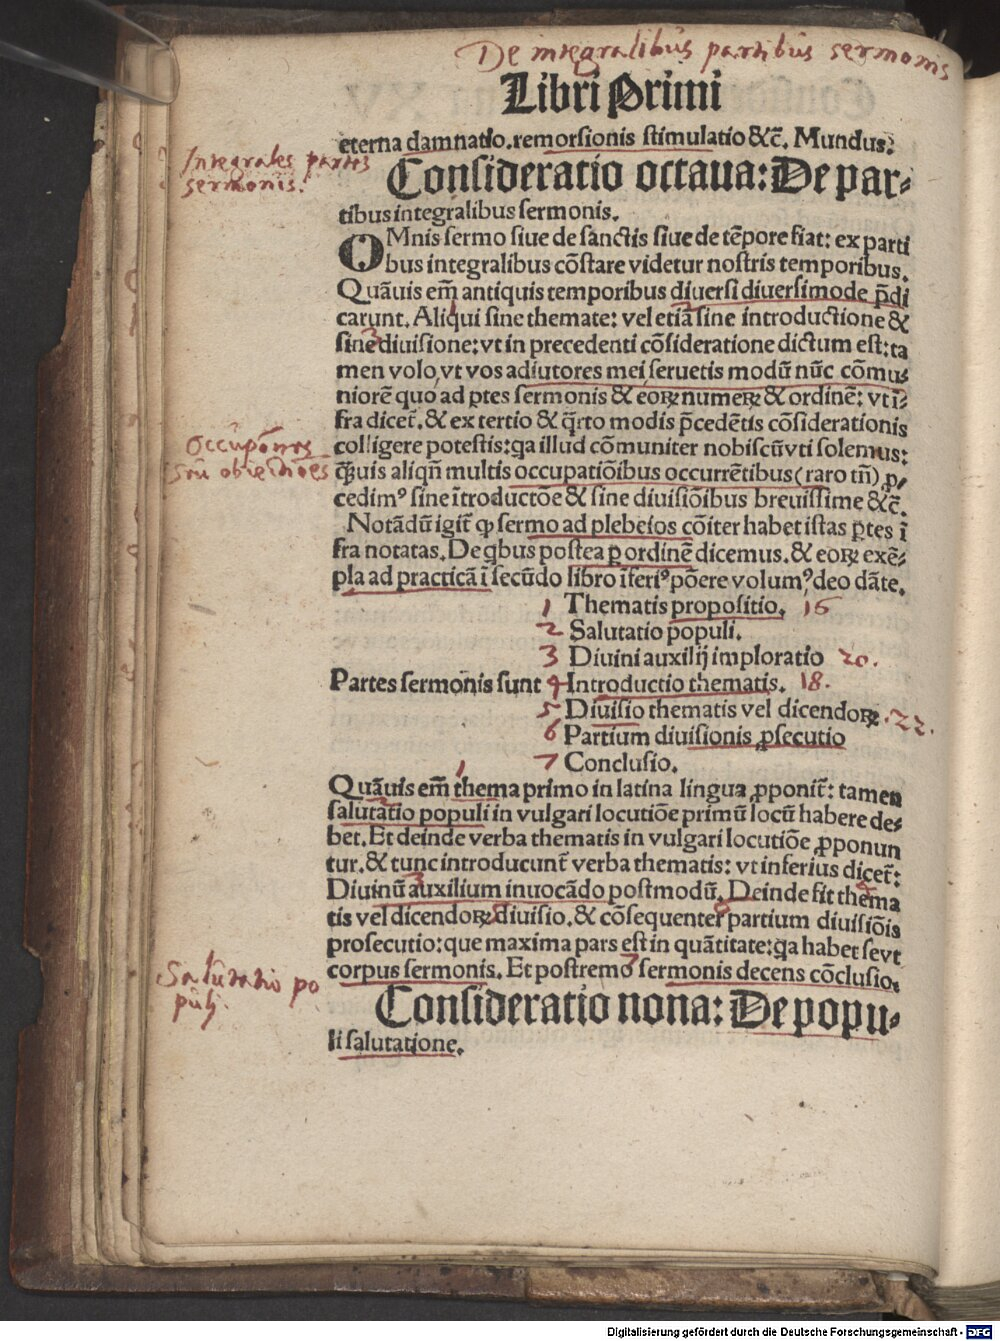 De integralibus partibus sermonis
Libri Primi
eterna damnatio.remorsionis stimulatio &c̄. Mundus:
Integrales partes
sermonis.
Consideratio octaua: De par-
tibus integralibus sermonis.
OMnis sermo siue de sanctis siue de tēpore fiat: ex parti
bus integralibus cōstare videtur nostris temporibus.
Quāuis em̄ antiquis temporibus diuersi diuersimode p̄di
carunt. Aliqui sine themate: vel etiā sine introductione &
sine diuisione: vt in precedenti cōsideratione dictum est: ta
men volo, vt vos adiutores mei, seruetis modū nūc cōmu-
niorē quo ad ptes sermonis & eoꝝ numeꝝ & ordinē: vt ī-
fra dicet̄. & ex tertio & q̄rto modis p̄cedētis cōsiderationis
colligere potestis: qa illud cōmuniter nobiscū vti solemus:
Occupōnes
seu obiectiōes
q̄uis aliqn̄ multis occupatiōibus occurrētibus (raro tn̄) ꝓ-
cedimꝰ sine ītroductōe & sine diuisiōibus breuissime &c̄.
Notādū igit̄ ꝙ sermo ad plebeios cōiter habet istas ꝑtes ī
fra notatas. De qbus postea ꝑ ordinē dicemus. & eoꝝ exē-
pla ad practicā ī secūdo libro īferiꝰ pōere volumꝰ, deo dāte.
1 Thematis propositio. 16
2 Salutatio populi.
3 Diuini auxilij imploratio 20.
Partes sermonis sunt 4 Introductio thematis. 18.
5 Diuisio thematis vel dicendoꝝ. 22.
6 Partium diuisionis ꝓsecutio
7 Conclusio.
Quāuis em̄ thema primo in latina lingua ꝓponit̄: tamen
salutatio populi in vulgari locutiōe primū locū habere de-
bet. Et deinde verba thematis in vulgari locutiōe ꝓponun
tur. & tunc introducunt̄ verba thematis: vt inferius dicet̄:
Diuinū auxilium inuocādo postmodū. Deinde fit thema
tis vel dicendoꝝ diuisio. & cōsequenter partium diuisiōis
prosecutio: que maxima pars est in quātitate: qa habet se vt
corpus sermonis. Et postremo sermonis decens cōclusio.
Salutatio po
puli.
Consideratio nona: De popu-
li salutatione.
Digitalisierung gefördert durch die Deutsche Forschungsgemeinschaft - DFG